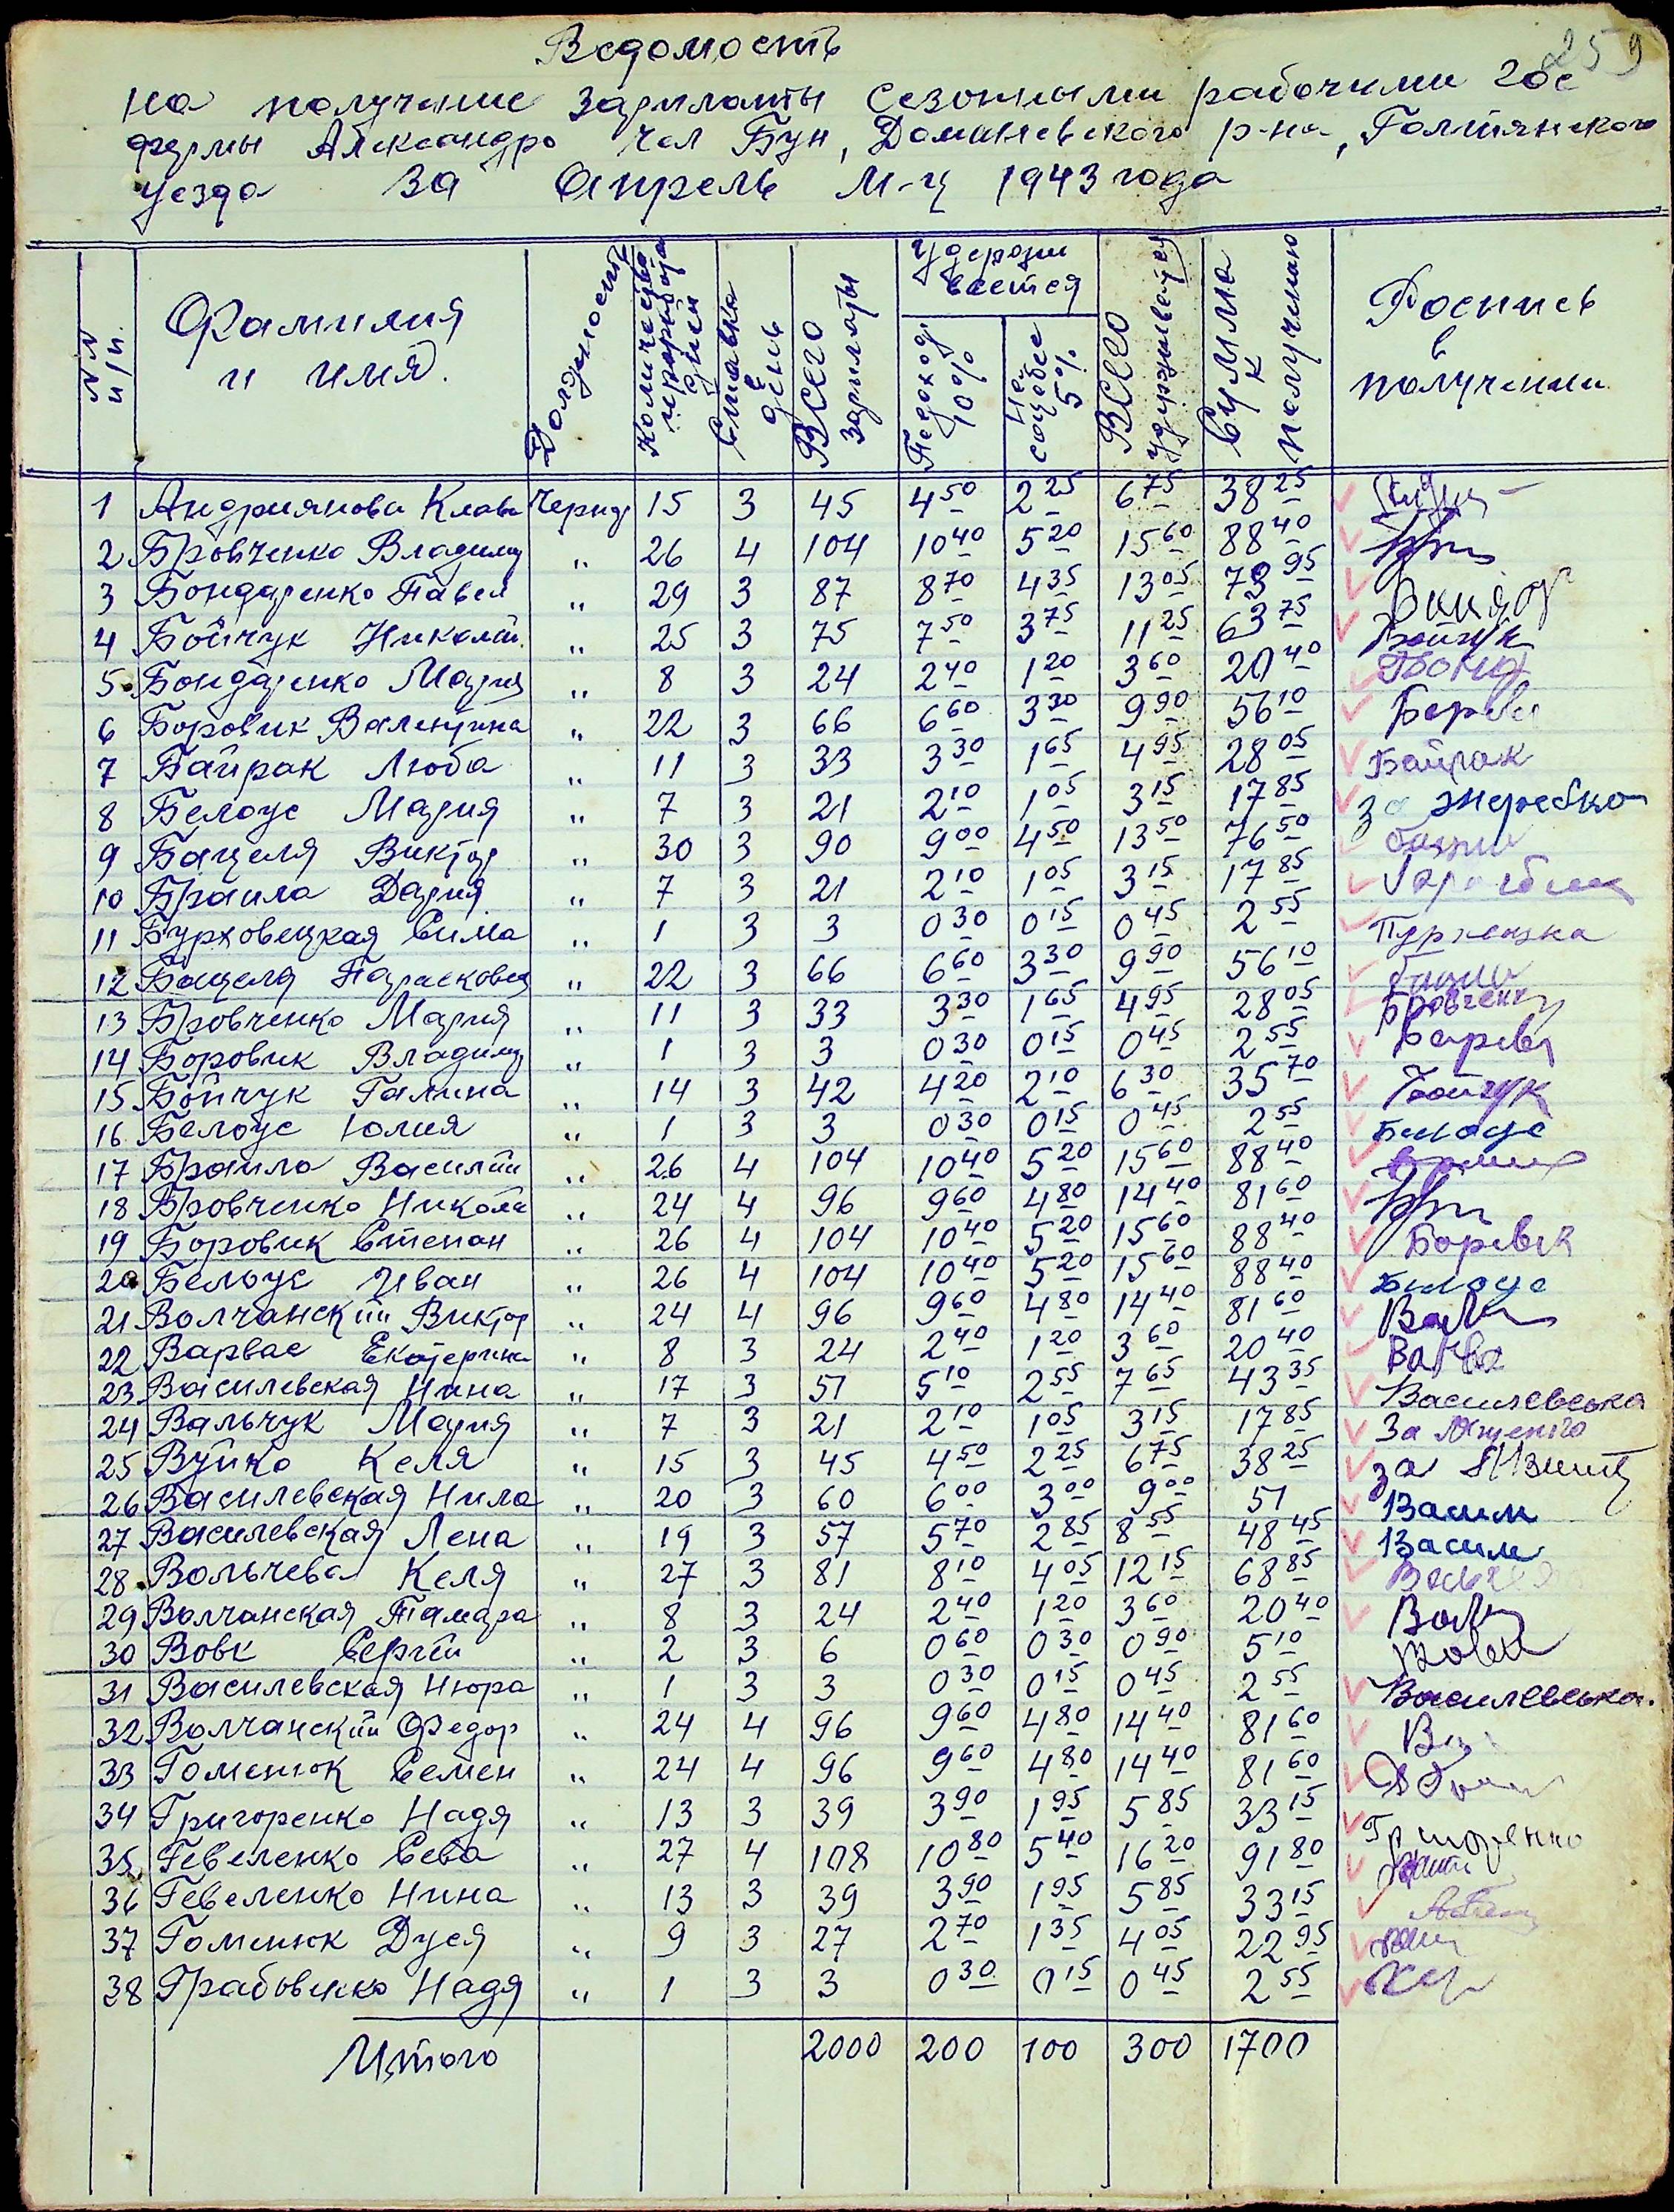 259
Ведомость
на получение зарплаты сезонными рабочими гос
фермы Александро чел Бун, Доманевского р-на, Голтянского
уезда за Апрель м-ц 1943 года
NN п/п. Фамилия и имя. Должность Количество дней Ставка в день Всего зарплаты Удержи вается Подоход 10% На соцобес 5% Всего удерживается Сумма к получению Роспись в получении
1 Андриянова Клава Черн 15 3 45 4 50 2 25 6 75 38 25
2 Бровченко Владимир " 26 4 104 10 40 5 20 15 60 88 40
3 Бондаренко Павел " 29 3 87 8 70 4 35 13 05 73 95
4 Бойчук Николай " 25 3 75 7 50 3 75 11 25 63 75 Бойчук
5 Бондаренко Мария " 8 3 24 2 40 1 20 3 60 20 40 Бонд
6 Боровик Валентина " 22 3 66 6 60 3 30 9 90 56 10
7 Байрак Люба " 11 3 33 3 30 1 65 4 95 28 05 Байрак
8 Белоус Мария " 7 3 21 2 10 1 05 3 15 17 85 за Жеребко
9 Бацеля Виктор " 30 3 90 9 00 4 50 13 50 76 50
10 Браила Дария " 7 3 21 2 10 1 05 3 15 17 85
11 Бурховецкая Сима " 1 3 3 0 30 0 15 0 45 2 55
12 Бацеля Парасковия " 22 3 66 6 60 3 30 9 90 56 10
13 Бровченко Мария " 11 3 33 3 30 1 65 4 95 28 05 Бровченк
14 Боровик Владимир " 1 3 3 0 30 0 15 0 45 2 55
15 Бойчук Галина " 14 3 42 4 20 2 10 6 30 35 70 Бойчук
16 Белоус Юлия " 1 3 3 0 30 0 15 0 45 2 55 Билоус
17 Браило Василий " 26 4 104 10 40 5 20 15 60 88 40
18 Бровченко Никола " 24 4 96 9 60 4 80 14 40 81 60
19 Боровик Степан " 26 4 104 10 40 5 20 15 60 88 40 Боровик
20 Белоус Иван " 26 4 104 10 40 5 20 15 60 88 40 Билоус
21 Волчанский Виктор " 24 4 96 9 60 4 80 14 40 81 60
22 Варвас Екатерина " 8 3 24 2 40 1 20 3 60 20 40
23 Василевская Нина " 17 3 51 5 10 2 55 7 65 43 35 Василевська
24 Вальчук Мария " 7 3 21 2 10 1 05 3 15 17 85 За
25 Вуйко Келя " 15 3 45 4 50 2 25 6 75 38 25 за
26 Василевская Нила " 20 3 60 6 00 3 00 9 00 51 Васил
27 Василевская Лена " 19 3 57 5 70 2 85 8 55 48 45 Васил
28 Вольчева Келя " 27 3 81 8 10 4 05 12 15 68 85
29 Волчанская Тамара " 8 3 24 2 40 1 20 3 60 20 40
30 Вовк Сергій " 2 3 6 0 60 0 30 0 90 5 10 Вовк
31 Василевская Нюра " 1 3 3 0 30 0 15 0 45 2 55 Василевська.
32 Волчанский Федор " 24 4 96 9 60 4 80 14 40 81 60
33 Гоменюк Семен " 24 4 96 9 60 4 80 14 40 81 60
34 Григоренко Надя " 13 3 39 3 90 1 95 5 85 33 15 Григоренко
35 Гевеленко Сева " 27 4 108 10 80 5 40 16 20 91 80
36 Гевеленко Нина " 13 3 39 3 90 1 95 5 85 33 15
37 Гоменюк Дуся " 9 3 27 2 70 1 35 4 05 22 95
38 Грабовенко Надя " 1 3 3 0 30 0 15 0 45 2 55
Итого 2000 200 100 300 1700